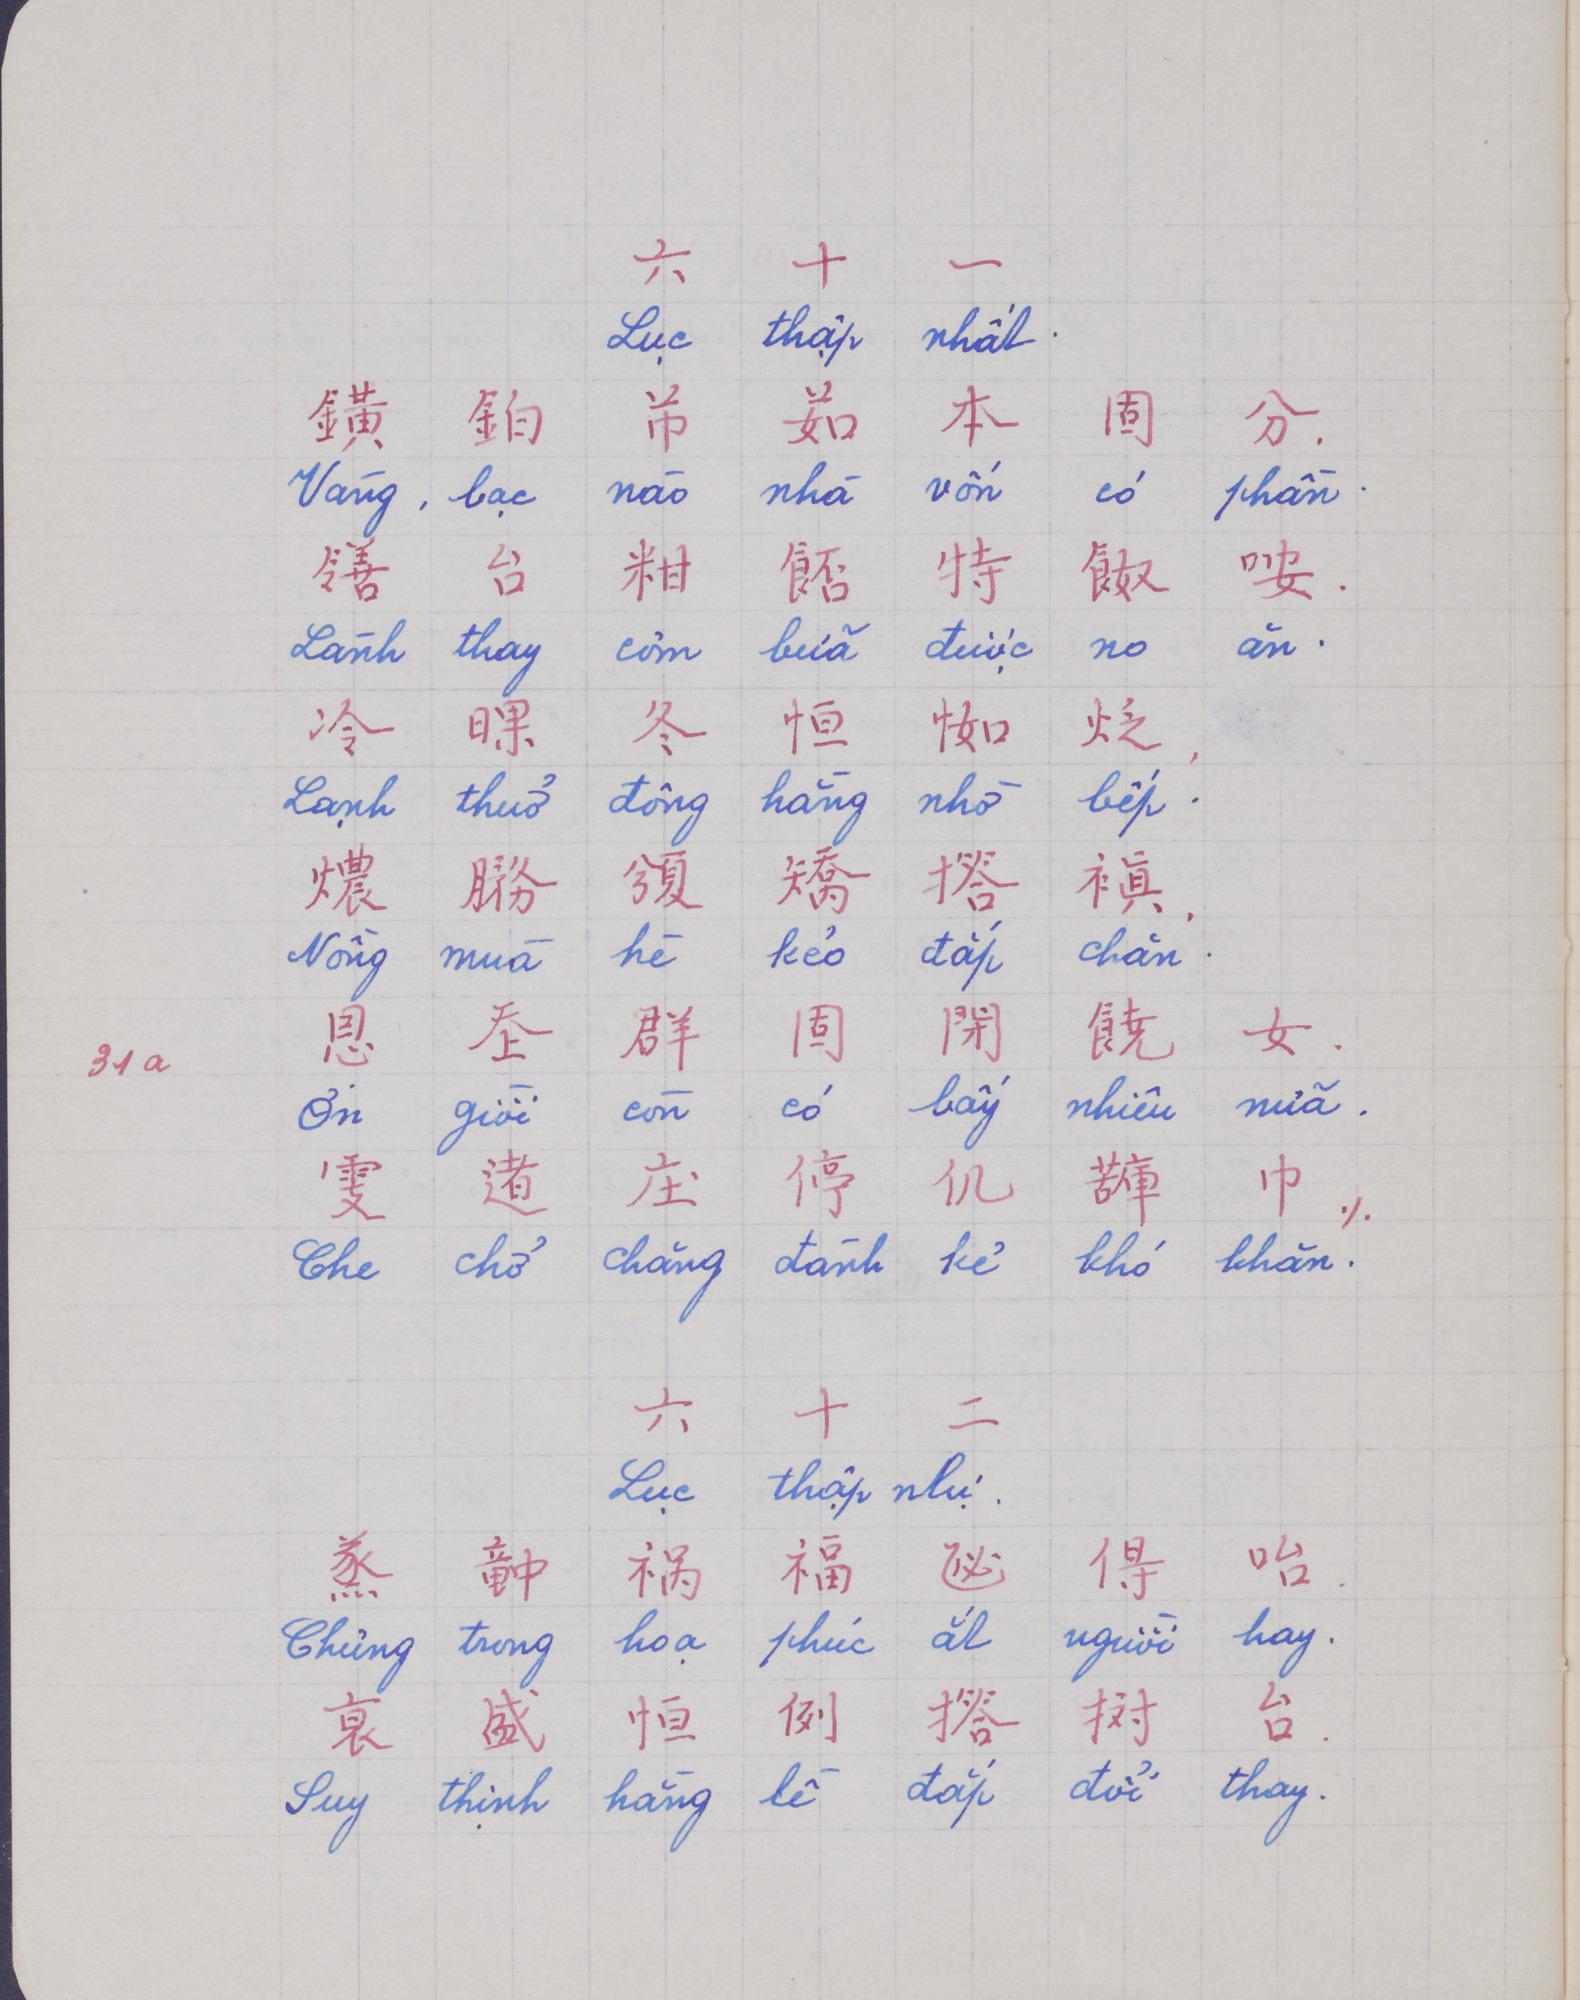 六 十 一
Lục thập nhất.
鐄 鉑 吊 茹 本 固 分.
Vàng, bạc nào nhà vốn có phần.
鐥 台 粓 𩛷 特 𩛂 咹.
Lành thay cơm bữa được no ăn.
冷 䁙 冬 恒 㤞 烶,
Lạnh thuở đông hằng nhờ bếp.
燶 務 夏 矯 撘 禛,
Nồng mùa hè kẻo đắp chăn.
恩 𡗶 群 固 閉 饒 女.
Ơn giời còn có bấy nhiêu nữa.
雯 渚 庄 停 仉 𦽰 巾 ٪
Che chở chẳng đành kẻ khó khăn.
31a
六 十 二
Lục thập nhị.
蒸 𥪝 祸 福 𠨡 得 咍.
Chưng trong hoạ phúc ắt người hay.
衰 盛 恒 例 撘 𢷮 台.
Suy thịnh hằng lề đắp đổi thay.